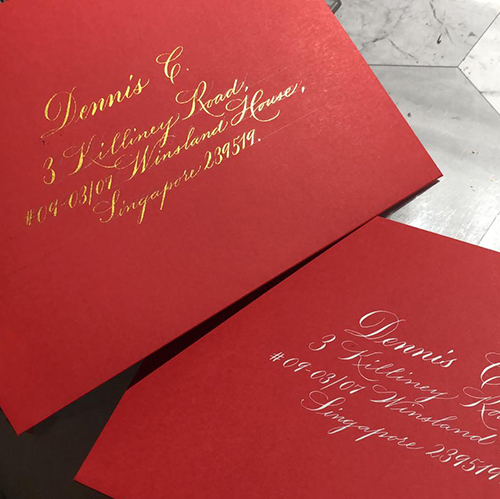 Dennis C.
3 Killiney Road,
#09-03/07 Winsland House,
Singapore 239519.
Dennis C
3 Killiney Ro
#09-03/07 Winsland
Singapore 239519